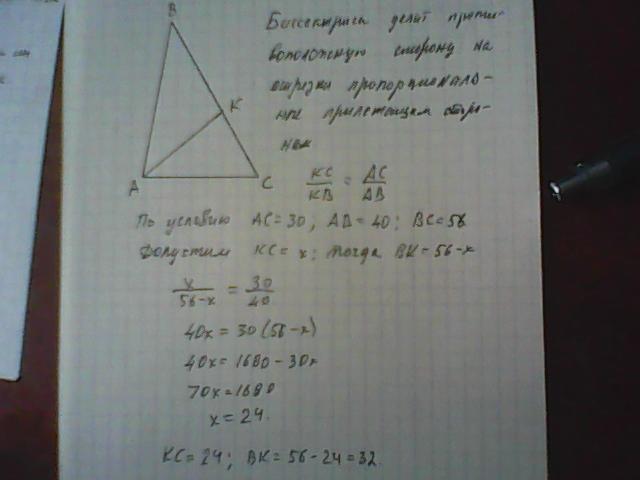 B
K
A
C
Биссектриса делит проти-
воположную сторону на
отрезки пропорциональ-
ные прилежащим сторо-
нам
KC/KB = AC/AB
По условию AC=30; AB=40; BC=56
Допустим KC=x; тогда BK=56-x
x/56-x = 30/40
40x=30(56-x)
40x=1680-30x
70x=1680
x=24.
KC=24; BK=56-24=32.